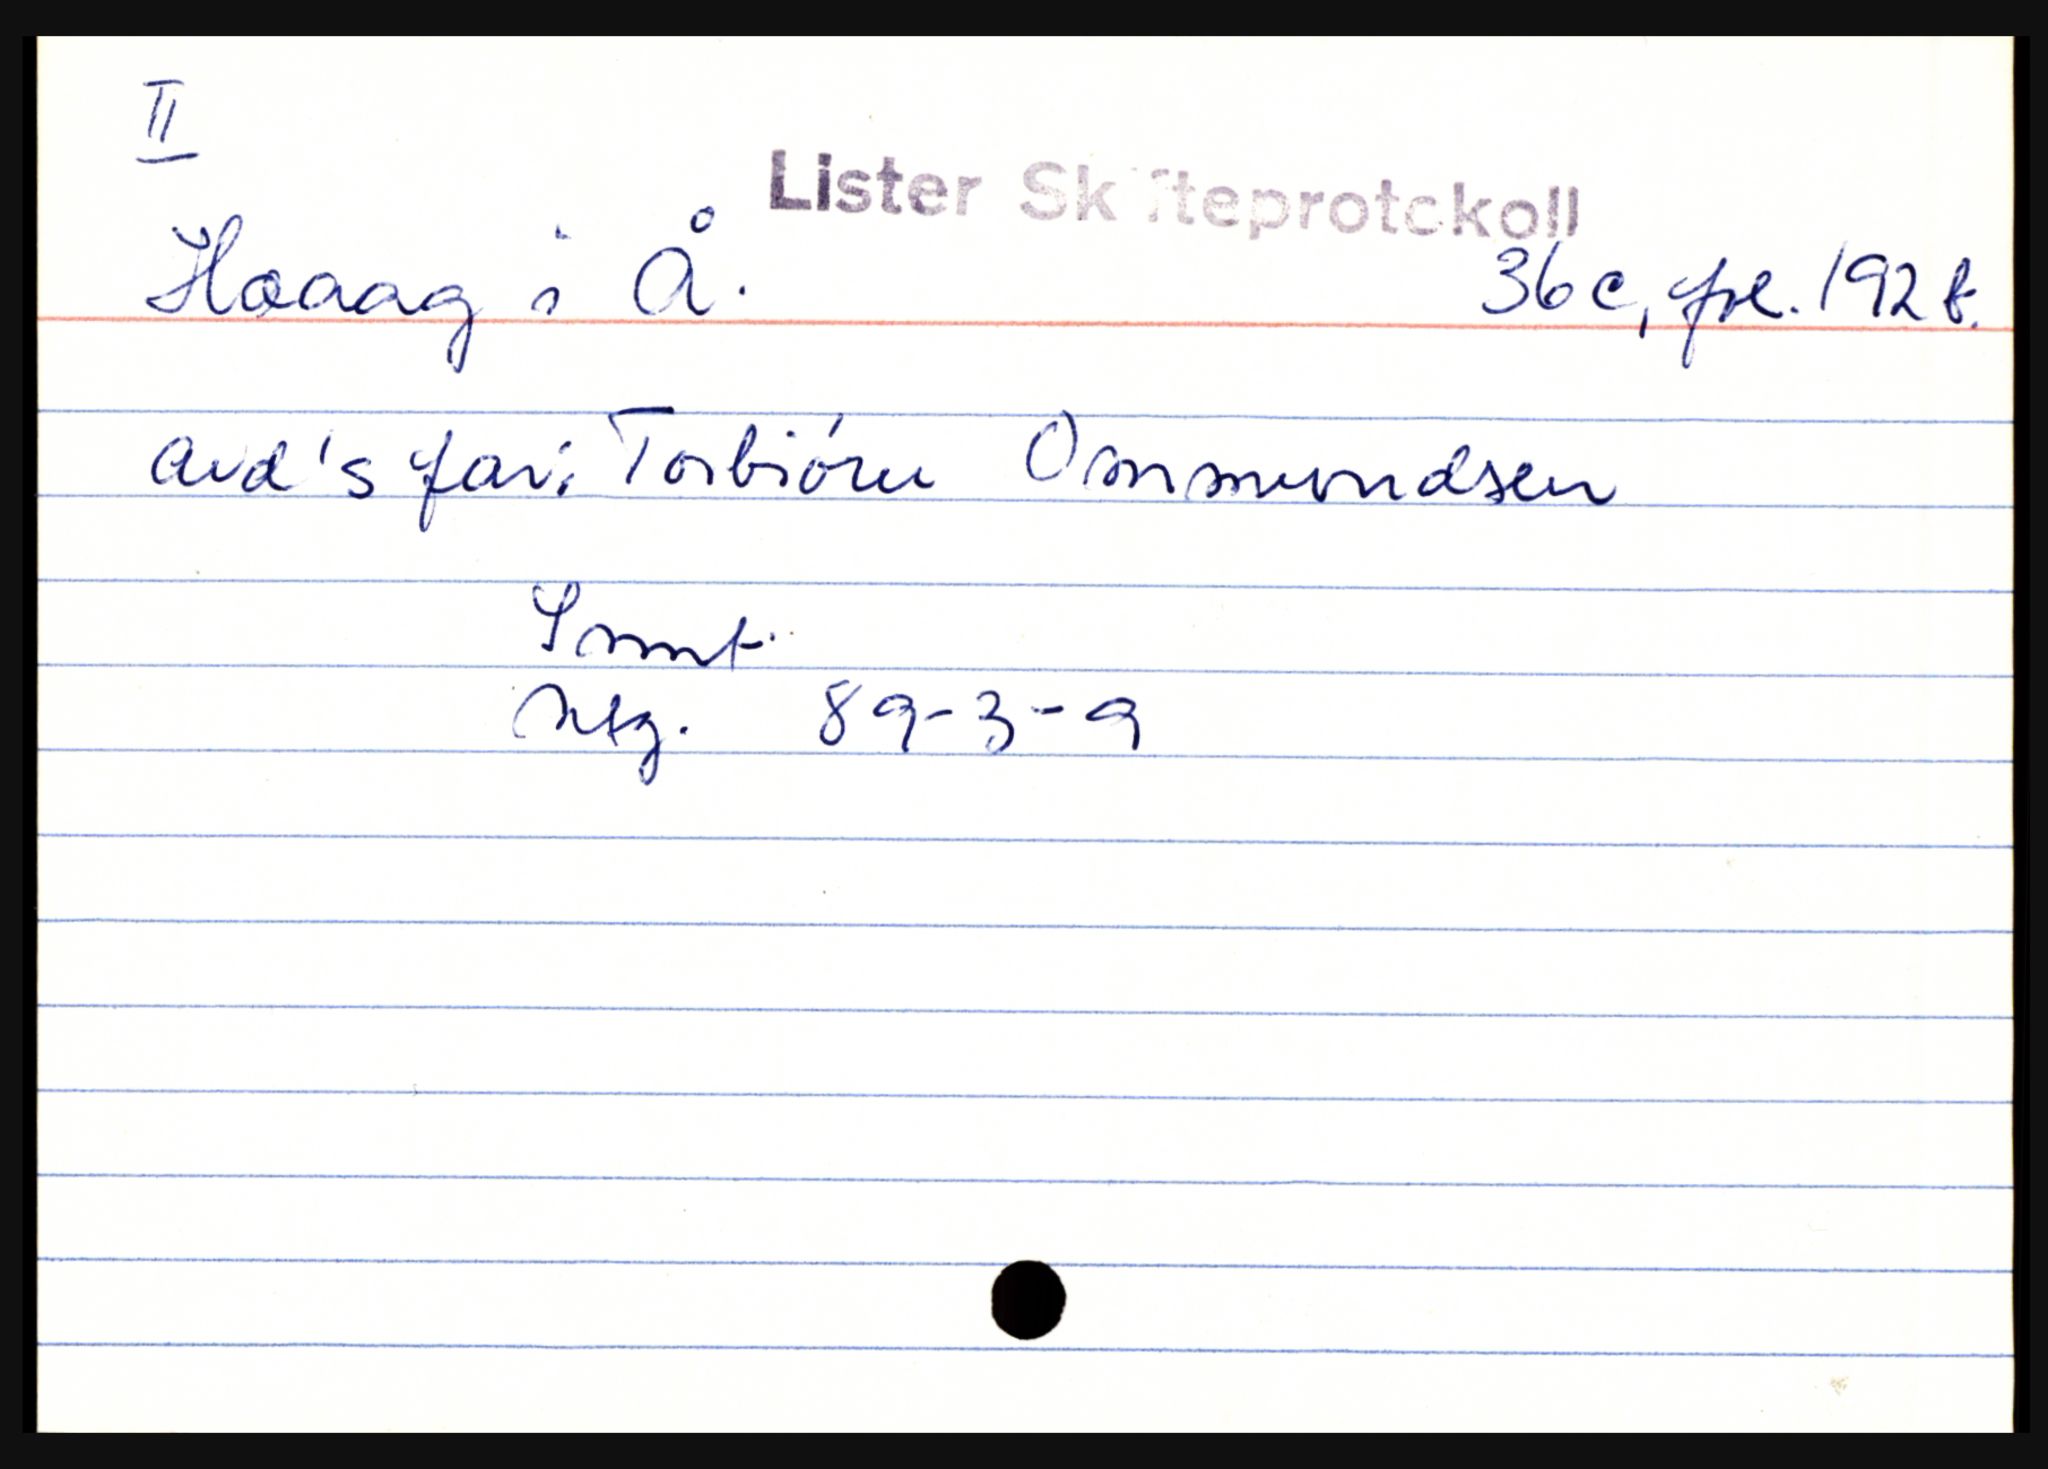 II
Lister Skifteprotokoll
Haaag i Å. 36c, fol. 192 b.
avd's far: Torbiörn Ommundsen
Smt.
Ntg. 89-3-9